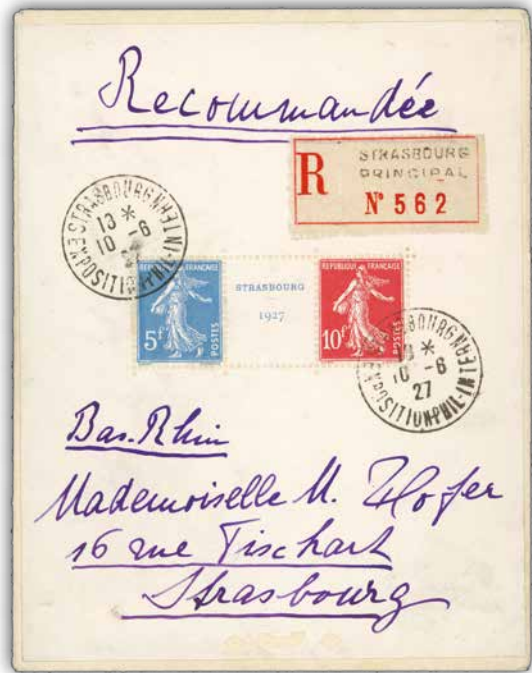 Recommandée
STRASBOURG
PRINCIPAL
R
N° 562
STRASBOURG
EXPOSITION-PHIL-INTERN
13 *
10 -6
REPUBLIQUE FRANÇAISE
5f
POSTES
STRASBOURG
1927
REPUBLIQUE FRANÇAISE
10f
POSTES
STRASBOURG
EXPOSITION-PHIL-INTERN
10 -6
27
Bas-Rhin
Mademoiselle M. Hofer
16 rue Fischart
Strasbourg